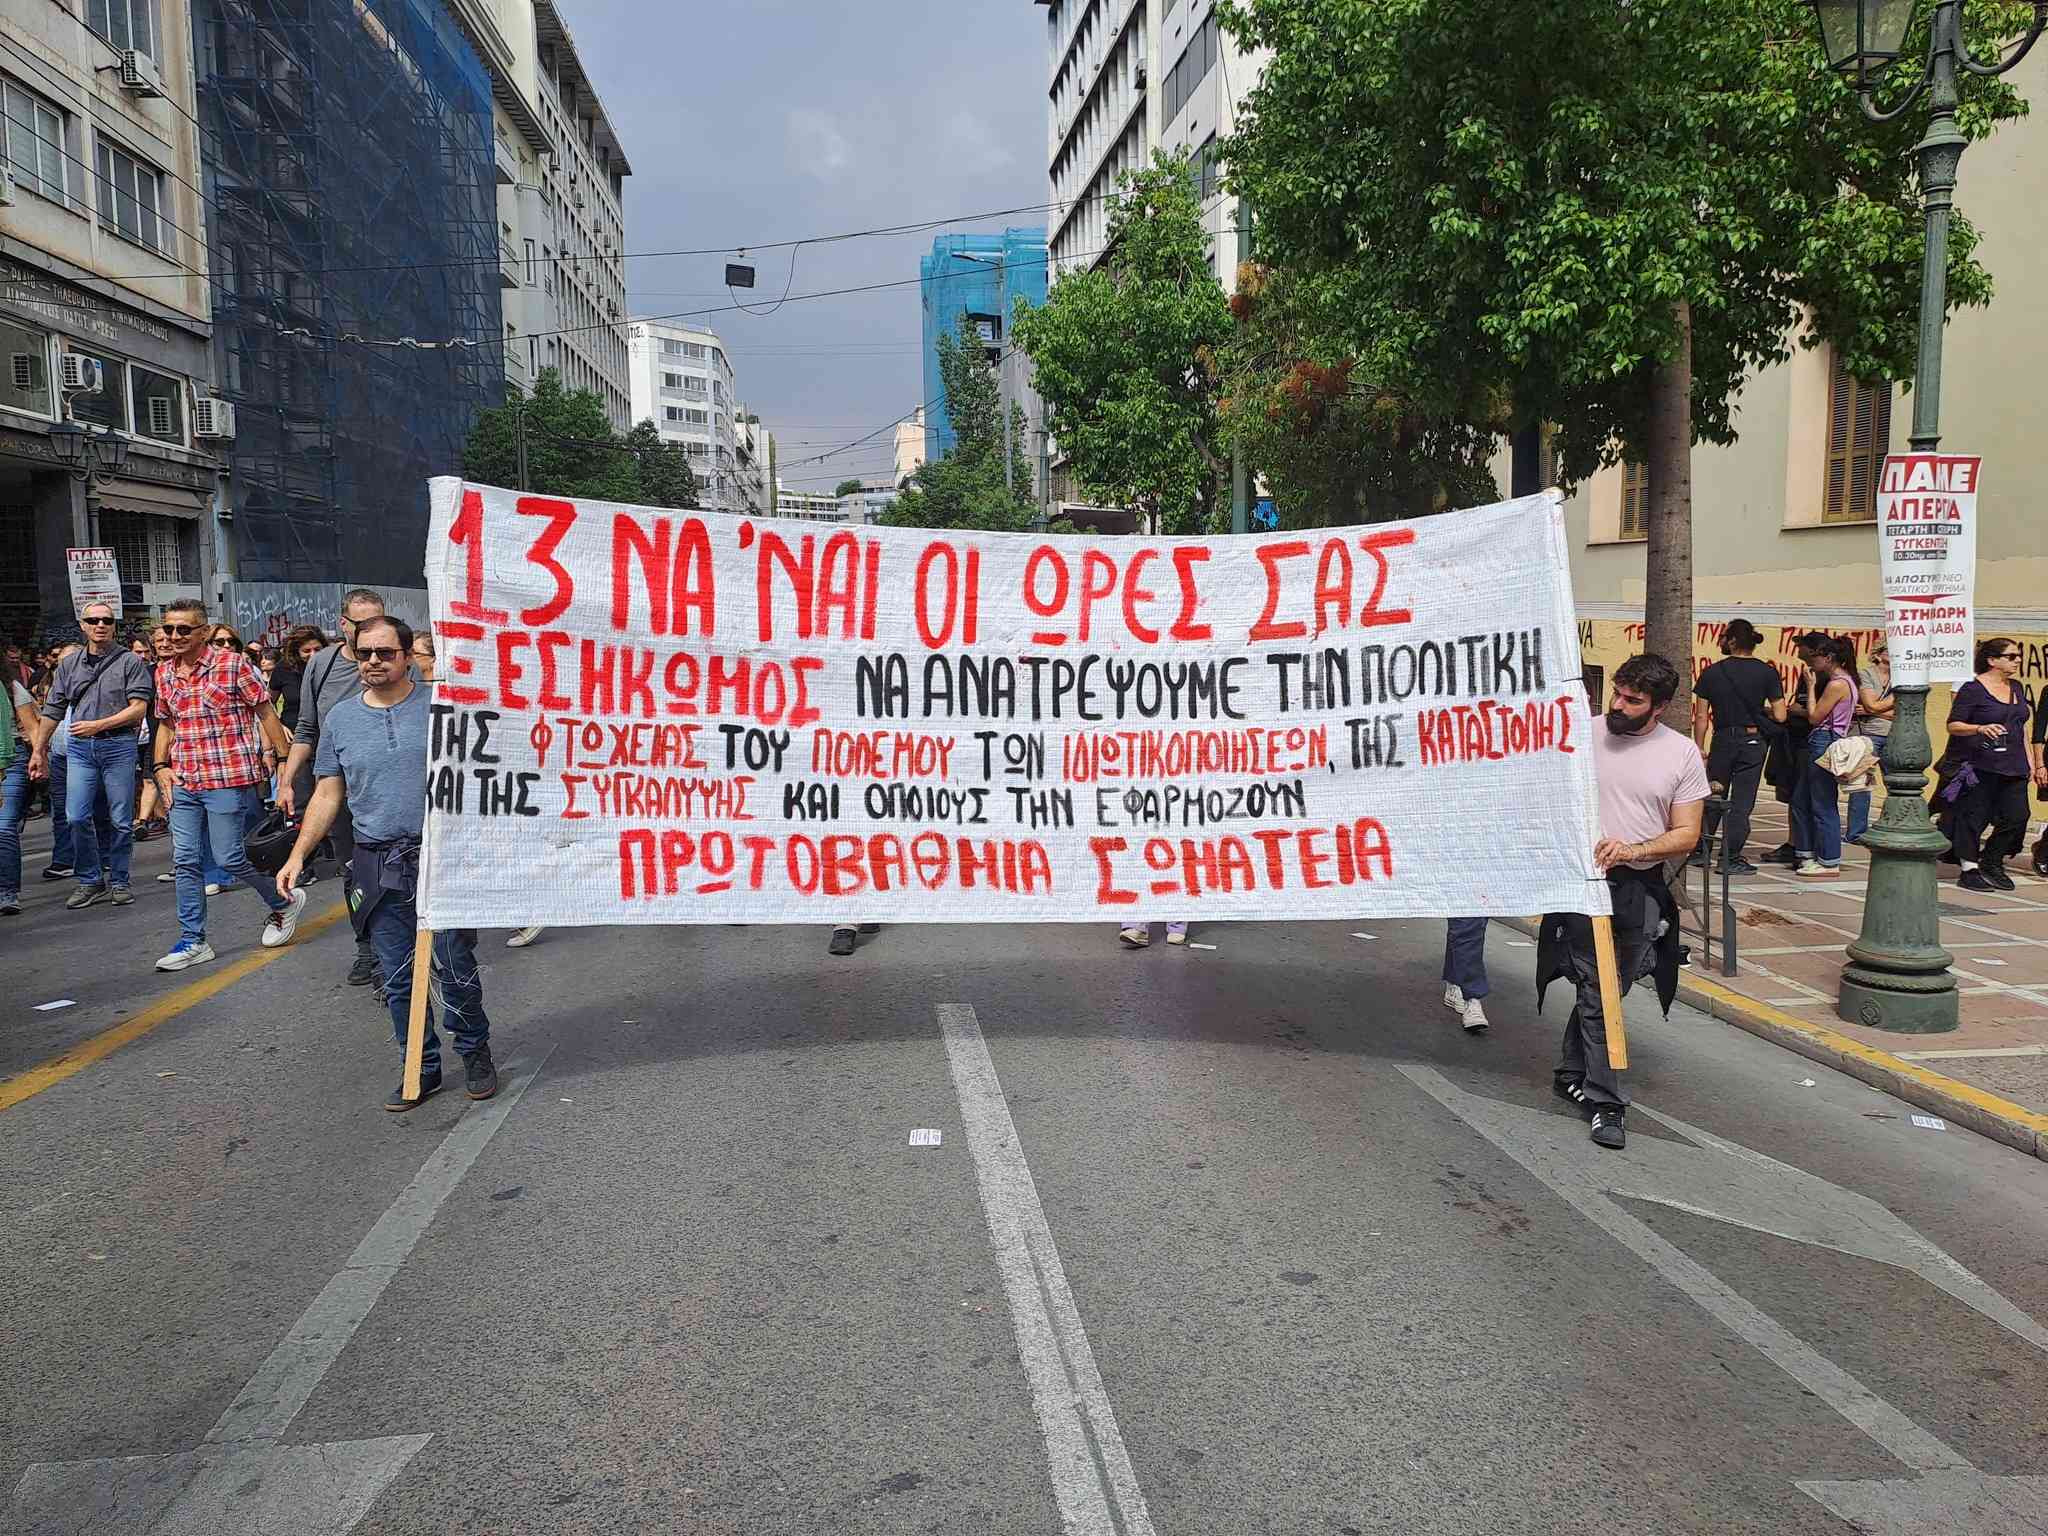 13 ΝΑ 'ΝΑΙ ΟΙ ΩΡΕΣ ΣΑΣ
ΞΕΣΗΚΩΜΟΣ ΝΑ ΑΝΑΤΡΕΨΟΥΜΕ ΤΗΝ ΠΟΛΙΤΙΚΗ
ΤΗΣ ΦΤΩΧΕΙΑΣ, ΤΟΥ ΠΟΛΕΜΟΥ, ΤΩΝ ΙΔΙΩΤΙΚΟΠΟΙΗΣΕΩΝ, ΤΗΣ ΚΑΤΑΣΤΟΛΗΣ
ΚΑΙ ΤΗΣ ΣΥΓΚΑΛΥΨΗΣ ΚΑΙ ΟΠΟΙΟΥΣ ΤΗΝ ΕΦΑΡΜΟΖΟΥΝ
ΠΡΩΤΟΒΑΘΜΙΑ ΣΩΜΑΤΕΙΑ
ΠΑΜΕ
ΑΠΕΡΓΙΑ
ΤΕΤΑΡΤΗ 1
ΣΥΓΚΕΝΤ
10.30πμ
ΝΕΟ
ΠΑΜΕ
ΑΠΕΡΓΙΑ
ΡΑΔΙΟ — ΤΗΛΕΟΡΑΣΙΣ ΚΙΝΗΜΑΤΟΓΡΑΦΟΣ
ΔΙΑΦΗΜΙΣΕΙΣ ΠΑΣΗΣ ΦΥΣΕΩΣ